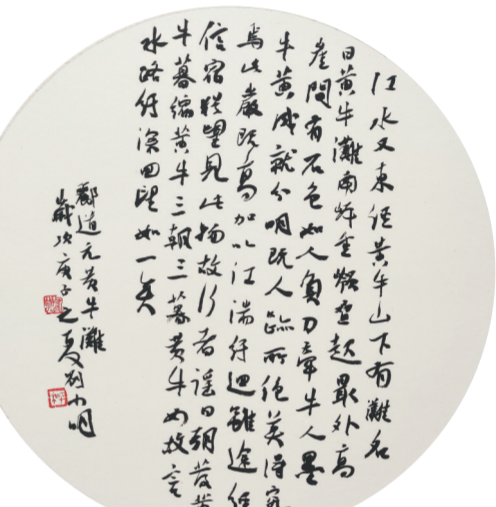 江水又東徑黄牛山下有灘名
曰黄牛灘南岸重嶺疊起最外高
崖間有石色如人負刀牽牛人墨
牛黄成就分明既人跡所絶莫得究
焉此巖既高加以江湍紆迴雖途徑
信宿猶望見此物故行者謠曰朝發黄
牛暮宿黄牛三朝三暮黄牛如故言
水路紆深回望如一矣
酈道元黄牛灘
歲次庚子之夏劉小明